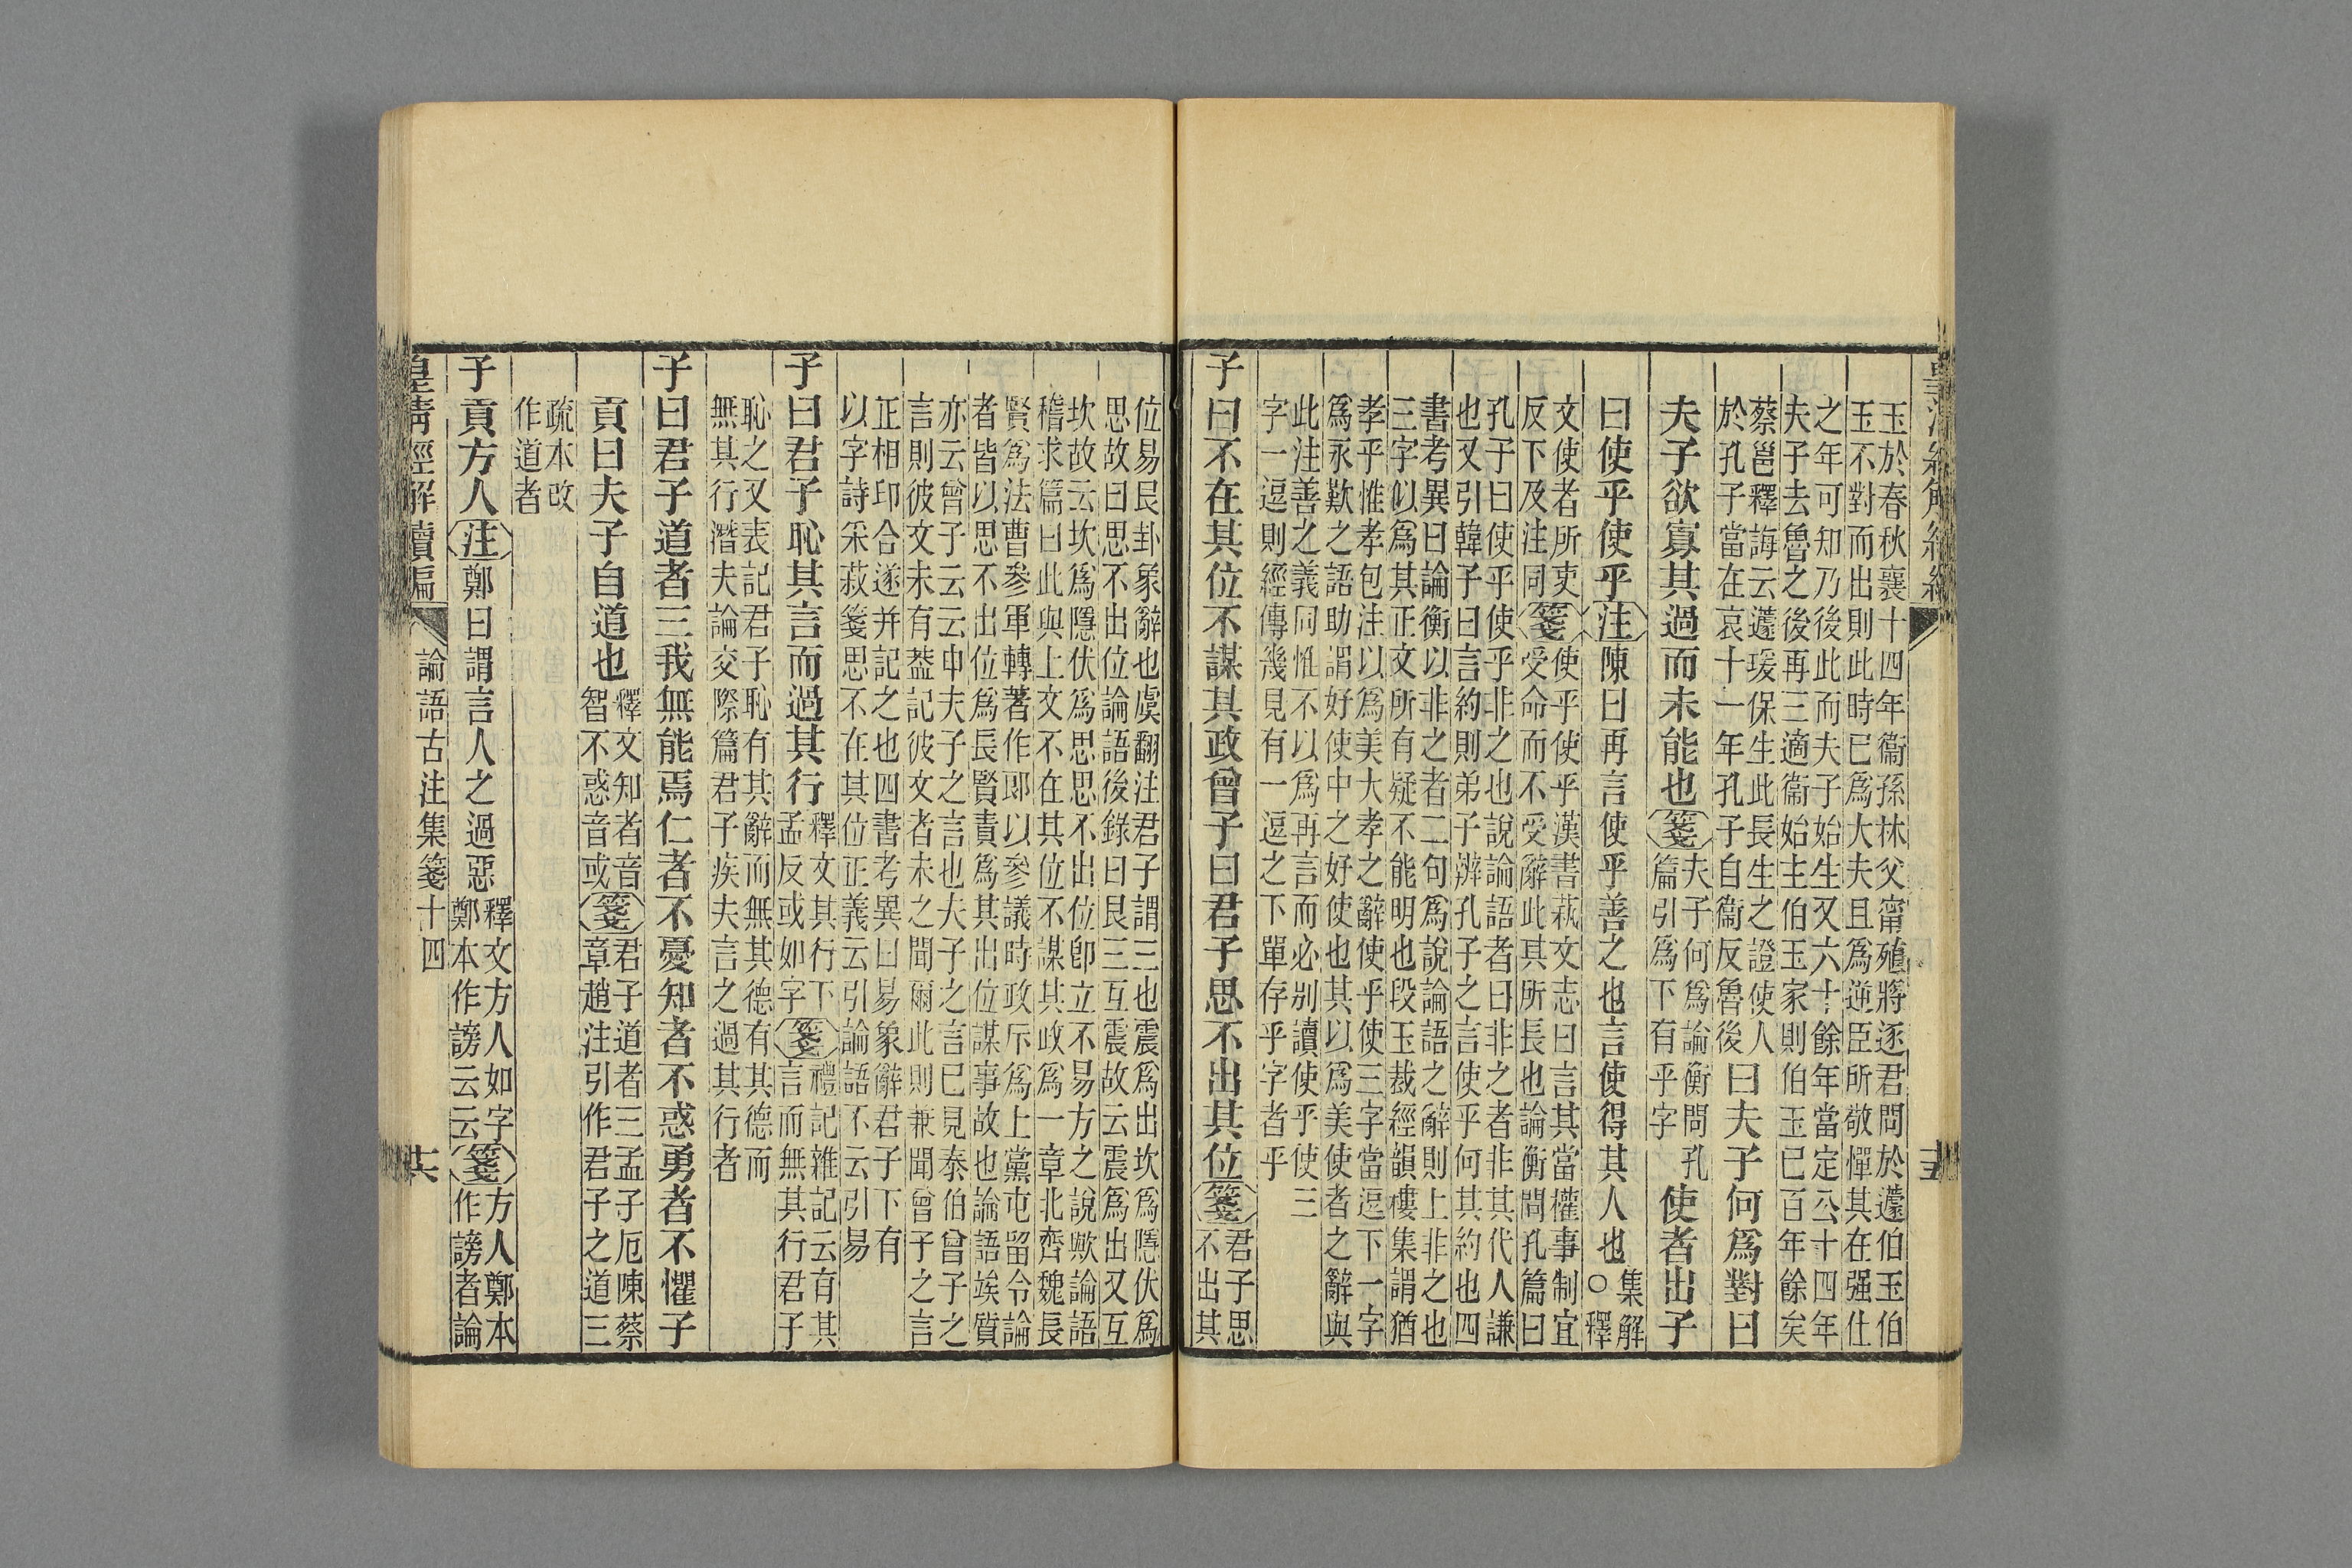 玉於春秋襄十四年衞孫林父甯殖將逐君問於蘧伯玉伯
玉不對而出則此時已爲大夫且爲逆臣所敬憚其在强仕
之年可知乃後此而夫子始生又六十餘年當定公十四年
夫子去魯之後再三適衞始主伯玉家則伯玉已百年餘矣
蔡邕釋誨云蘧瑗保生此長生之證使人
於孔子當在哀十一年孔子自衞反魯後
曰夫子何爲對曰
夫子欲寡其過而未能也
箋
夫子何爲論衡問孔
篇引爲下有乎字
使者出子
曰使乎使乎
注
陳曰再言使乎善之也言使得其人也
集解
○釋
文使者所吏
反下及注同
箋
使乎使乎漢書蓺文志曰言其當權事制宜
受命而不受辭此其所長也論衡問孔篇曰
孔子曰使乎使乎非之也說論語者曰非之者非其代人謙
也又引韓子曰言約則弟子辨孔子之言使乎何其約也四
書考異曰論衡以非之者二句爲說論語之辭則上非之也
三字似爲其正文所有疑不能明也段玉裁經韻樓集謂猶
孝乎惟孝包注以爲美大孝之辭使乎使三字當逗下一字
爲永歎之語助謂好使中之好使也其以爲美使者之辭與
此注善之義同惟不以爲再言而必别讀使乎使三
字一逗則經傳幾見有一逗之下單存乎字者乎
子曰不在其位不謀其政曾子曰君子思不出其位
箋
君子思
不出其
位易艮卦象辭也虞翻注君子謂三也震爲出坎爲隱伏爲
思故曰思不出位論語後錄曰艮三互震故云震爲出又互
坎故云坎爲隱伏爲思思不出位卽立不易方之說歟論語
稽求篇曰此與上文不在其位不謀其政爲一章北齊魏長
賢爲法曹參軍轉著作郎以參議時政斥爲上黨屯留令論
者皆以思不出位爲長賢責爲其出位謀事故也論語竢質
亦云曾子云云申夫子之言也夫子之言已見泰伯曾子之
言則彼文未有葢記彼文者未之聞爾此則兼聞曾子之言
正相印合遂并記之也四書考異曰易象辭君子下有
以字詩采菽箋思不在其位正義云引論語不云引易
子曰君子恥其言而過其行
釋文其行下
孟反或如字
箋
禮記雜記云有其
言而無其行君子
恥之又表記君子恥有其辭而無其德有其德而
無其行潛夫論交際篇君子疾夫言之過其行者
子曰君子道者三我無能焉仁者不憂知者不惑勇者不懼子
貢曰夫子自道也
釋文知者音
智不惑音或
箋
君子道者三孟子厄陳蔡
章趙注引作君子之道三
疏本改
作道者
子貢方人
注
鄭曰謂言人之過惡
釋文方人如字
鄭本作謗云云
箋
方人鄭本
作謗者論
皇清經解續編
論語古注集箋十四